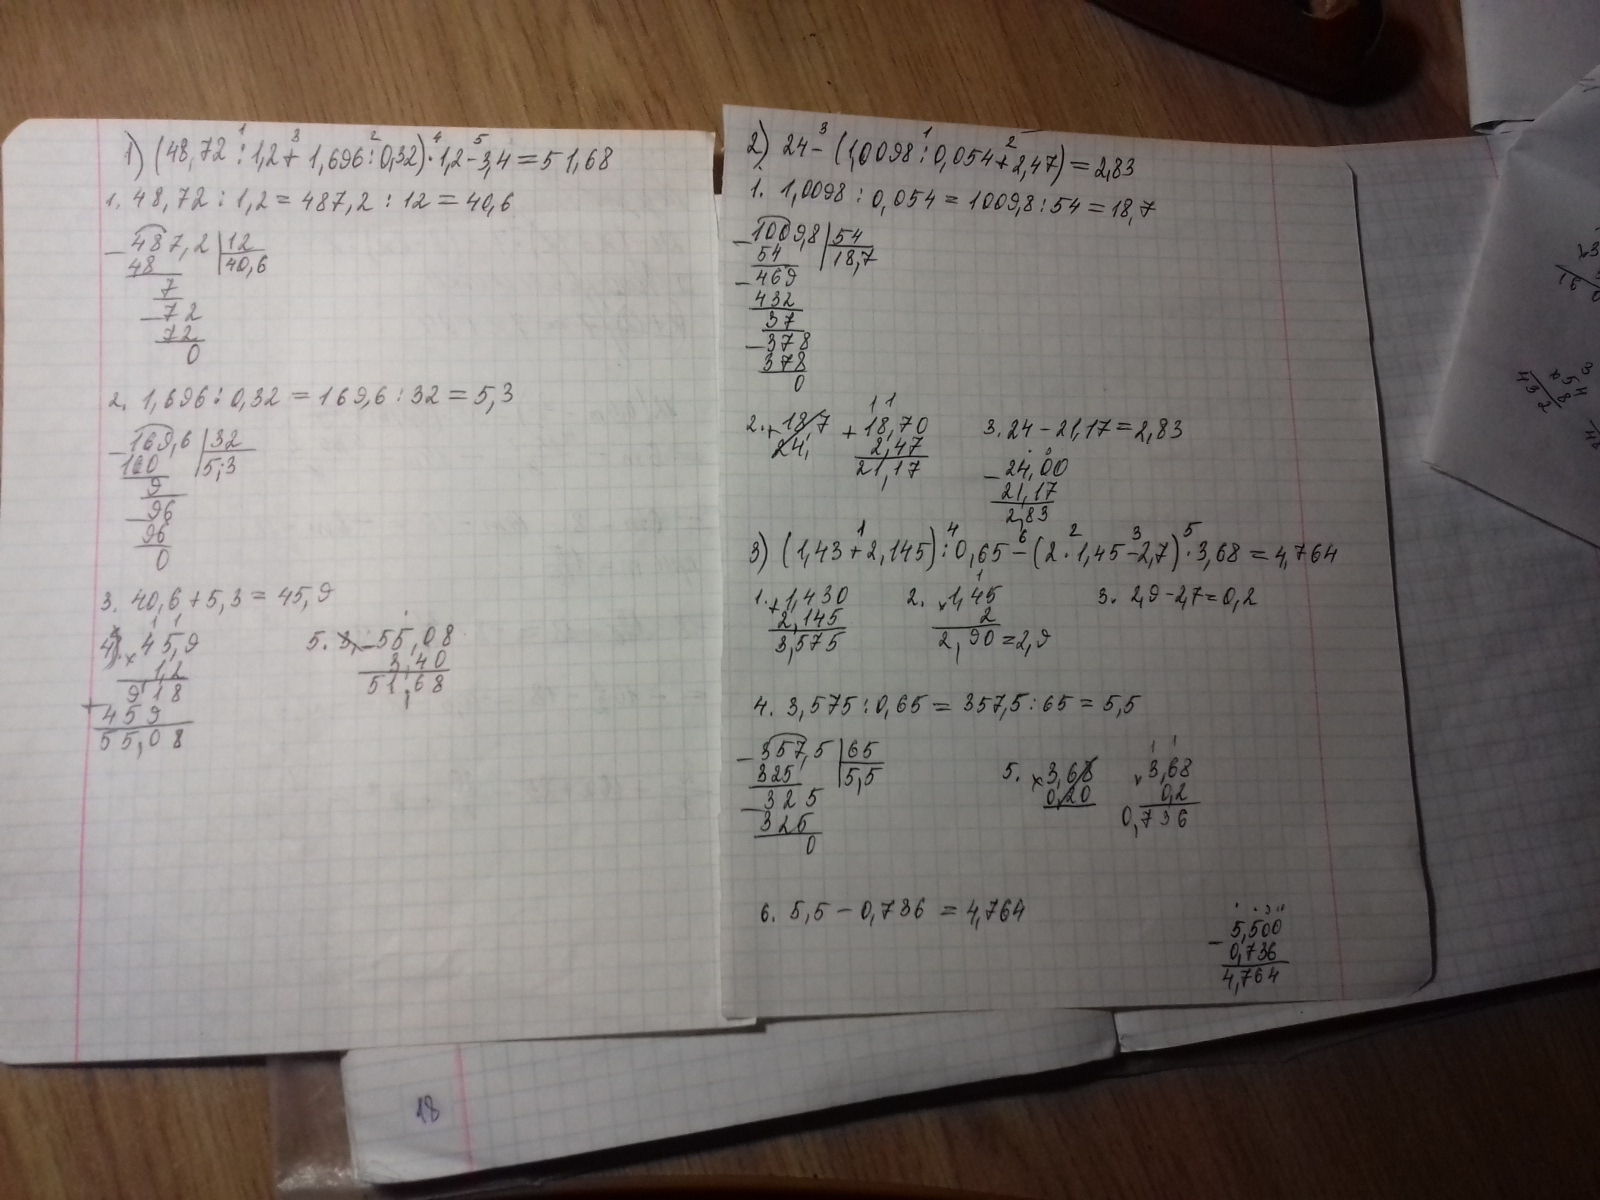 1) (48,72 : 1,2 + 1,696 : 0,32) · 1,2 - 3,4 = 51,68
1. 48,72 : 1,2 = 487,2 : 12 = 40,6
487,2 | 12
48 40,6
7
72
72
0
2. 1,696 : 0,32 = 169,6 : 32 = 5,3
169,6 | 32
160 5,3
9
96
96
0
3. 40,6 + 5,3 = 45,9
4. × 45,9
1,2
918
+ 459
55,08
5. - 55,08
3,40
51,68
2) 24 - (1,0098 : 0,054 + 2,47) = 2,83
1. 1,0098 : 0,054 = 1009,8 : 54 = 18,7
1009,8 | 54
54 18,7
469
432
37
378
378
0
2. + 18,70
2,47
21,17
3. 24 - 21,17 = 2,83
- 24,00
21,17
2,83
3) (1,43 + 2,145) : 0,65 - (2 · 1,45 - 2,7) · 3,68 = 4,764
1. + 1,430
2,145
3,575
2. × 1,45
2
2,90 = 2,9
3. 2,9 - 2,7 = 0,2
4. 3,575 : 0,65 = 357,5 : 65 = 5,5
357,5 | 65
325 5,5
325
325
0
5. × 3,68
0,20
× 3,68
0,2
0,736
6. 5,5 - 0,736 = 4,764
- 5,500
0,736
4,764
18